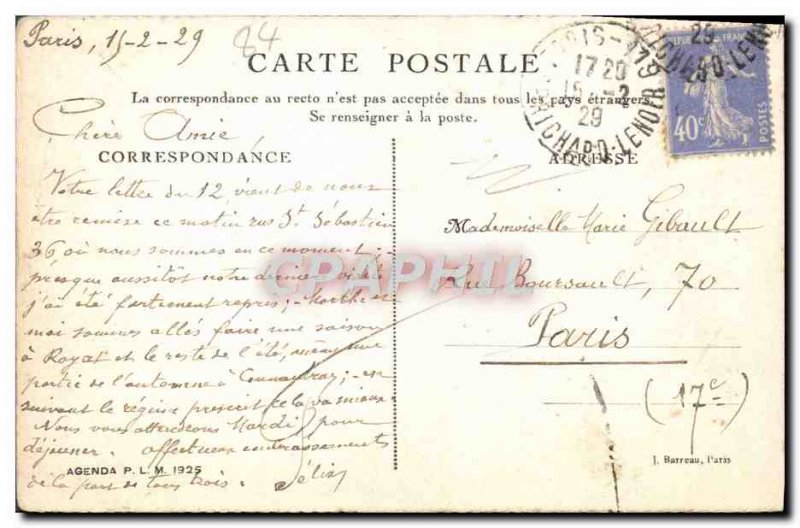 Paris, 15-2-29
84
CARTE POSTALE
La correspondance au recto n'est pas acceptée dans tous les pays étrangers.
Se renseigner à la poste.
PARIS-118
17 20
15-2
29
R. RICHARD-LENOIR
40c
POSTES
Chère Amie,
CORRESPONDANCE
ADRESSE
Votre lettre du 12, vient de nous
être remise ce matin rue St Sébastien
36 où nous sommes en ce moment;
presque aussitôt notre dernière visite
j'ai été fortement repris;
moi sommes allés faire une saison
à Royat et le reste de l'été, même une
partie de l'automne à
suivant le régime prescrit cela va mieux.
Nous vous attendrons Mardi pour
déjeuner. affectueux embrassements
AGENDA P. L. M. 1925
de la part de tous trois. Félix
Mademoiselle Marie Gibault
Rue Boursault, 70
Paris
(17e)
J. Barreau, Paris
CPAPHIL